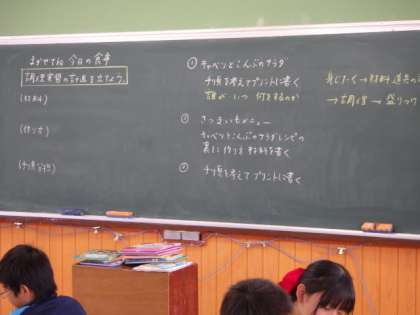 まかせてね 今日の食事
調理実習の計画を立てよう。
(材料)
(作り方)
(手順 分担)
① キャベツとこんぶのサラダ
手順を考えてプリントに書く
誰が いつ 何をするのか
② さつまいもメニュー
キャベツとこんぶのサラダレシピの
裏に作り方 材料を書く
③ 手順を考えて プリントに書く
身じたく→材料 道具の
→調理→盛りつけ